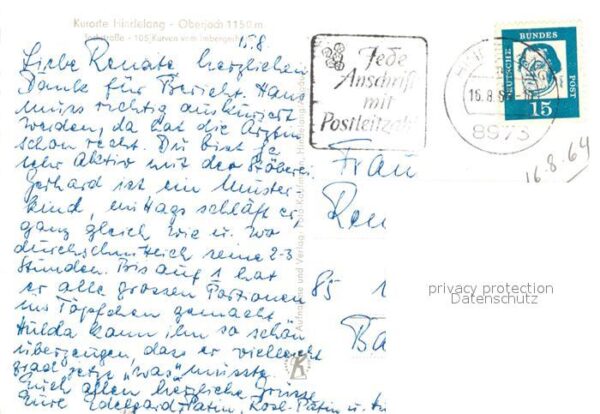 Kurorte Hindelang - Oberjoch 1150 m
Jochstraße - 105 Kurven vom Iseberg
15.8.
Liebe Renate herzlichen
Danke für Bericht. Hans
muss richtig auskuriert
werden, da hat die Ärztin
schon recht. Du bist ja
sehr Aktiv mit der Stöberei.
Gerhard ist ein Muster-
kind, mittags schläft er,
ganz gleich wie u. wo
durchschnittlich seine 2-3
Stunden. Bis auf 1 hat
er alle grossen Portionen
ins Töpfchen gemacht.
Hulda kann ihn so schön
überzeugen, dass er vielleicht
grad jetzt "was" müsste.
Euch allen herzliche Grüsse
Eure Edelgard-Patin, Rosl-Patin u.
Aufnahme und Verlag
Hindelang
K
Jede
Anschrift
mit
Postleitzahl
16.8.6
8973
DEUTSCHE
BUNDES
POST
15
16.8.64
Frau
Ren
85
1
Ba
privacy protection
Datenschutz